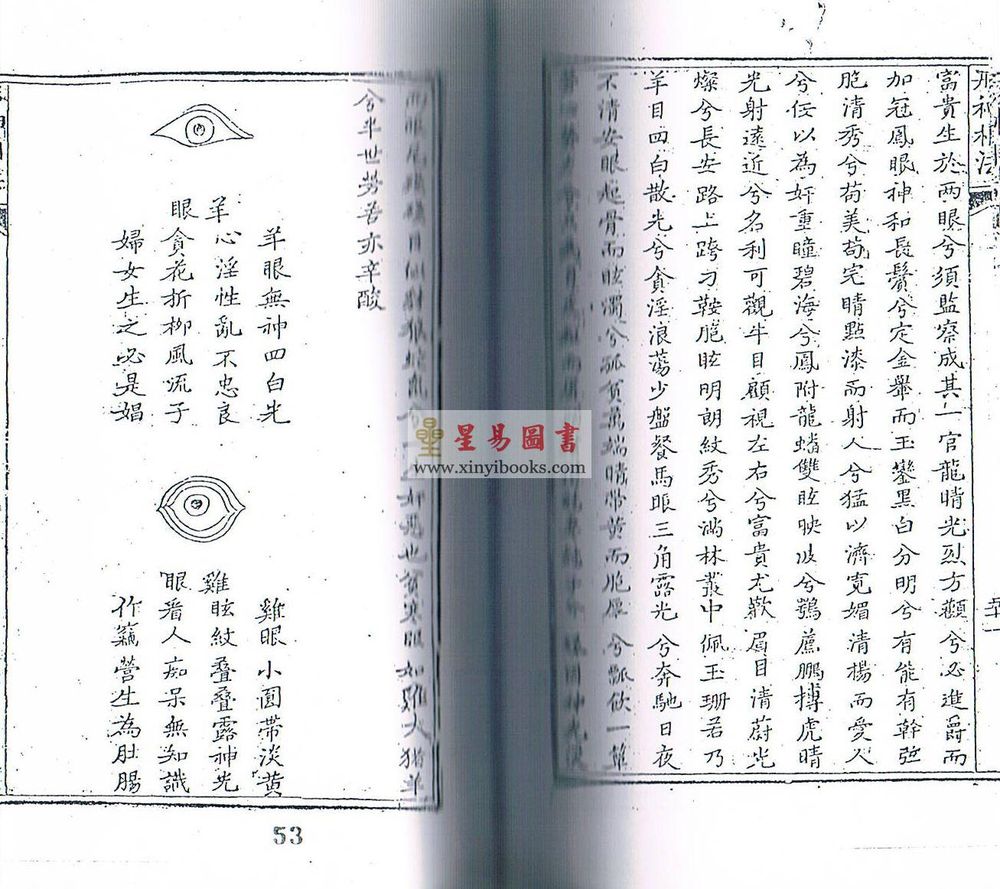 形神相法
富貴生於兩眼兮須監察成其一官龍睛光烈方顴兮必進爵而
加冠鳳眼神和長鬢兮定金舉而玉鑾黑白分明兮有能有幹弦
胞清秀兮苟美苟完睛點漆而射人兮猛以濟寬媚清楊而愛人
兮任以為奸重瞳碧海兮鳳附龍蟠雙眩映波兮鶚薦鵬摶虎睛
光射遠近兮名利可觀牛目顧視左右兮富貴尤歡眉目清蔚光
燦兮長安路上跨刁鞍胞眩明朗紋秀兮滿林叢中佩玉珊若乃
羊目四白散光兮貪淫浪蕩少盤餐馬眼三角露光兮奔馳日夜
不清安眼起骨而眩濁兮孤貧萬端睛帶黃而胞厚兮瓢飲一簞
奸惡也貧寒眼如雞犬猪羊
兮半世勞苦亦辛酸
羊眼
羊眼無神四白光
心淫性亂不忠良
貪花折柳風流子
婦女生之必是娼
雞眼
雞眼小圓帶淡黃
眩紋叠叠露神光
看人痴呆無知識
作竊營生為肚腸
53
星易圖書
www.xinyibooks.com